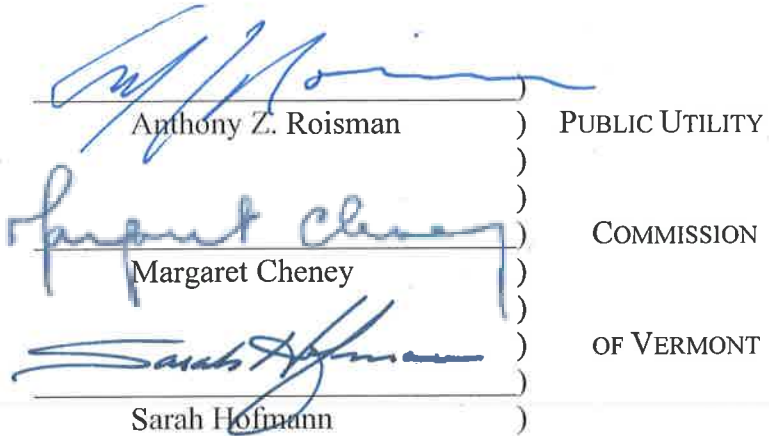 )
Anthony Z. Roisman ) PUBLIC UTILITY
)
)
Margaret Cheney ) COMMISSION
Margaret Cheney )
)
)
Sarah Hofmann ) OF VERMONT
)
Sarah Hofmann )